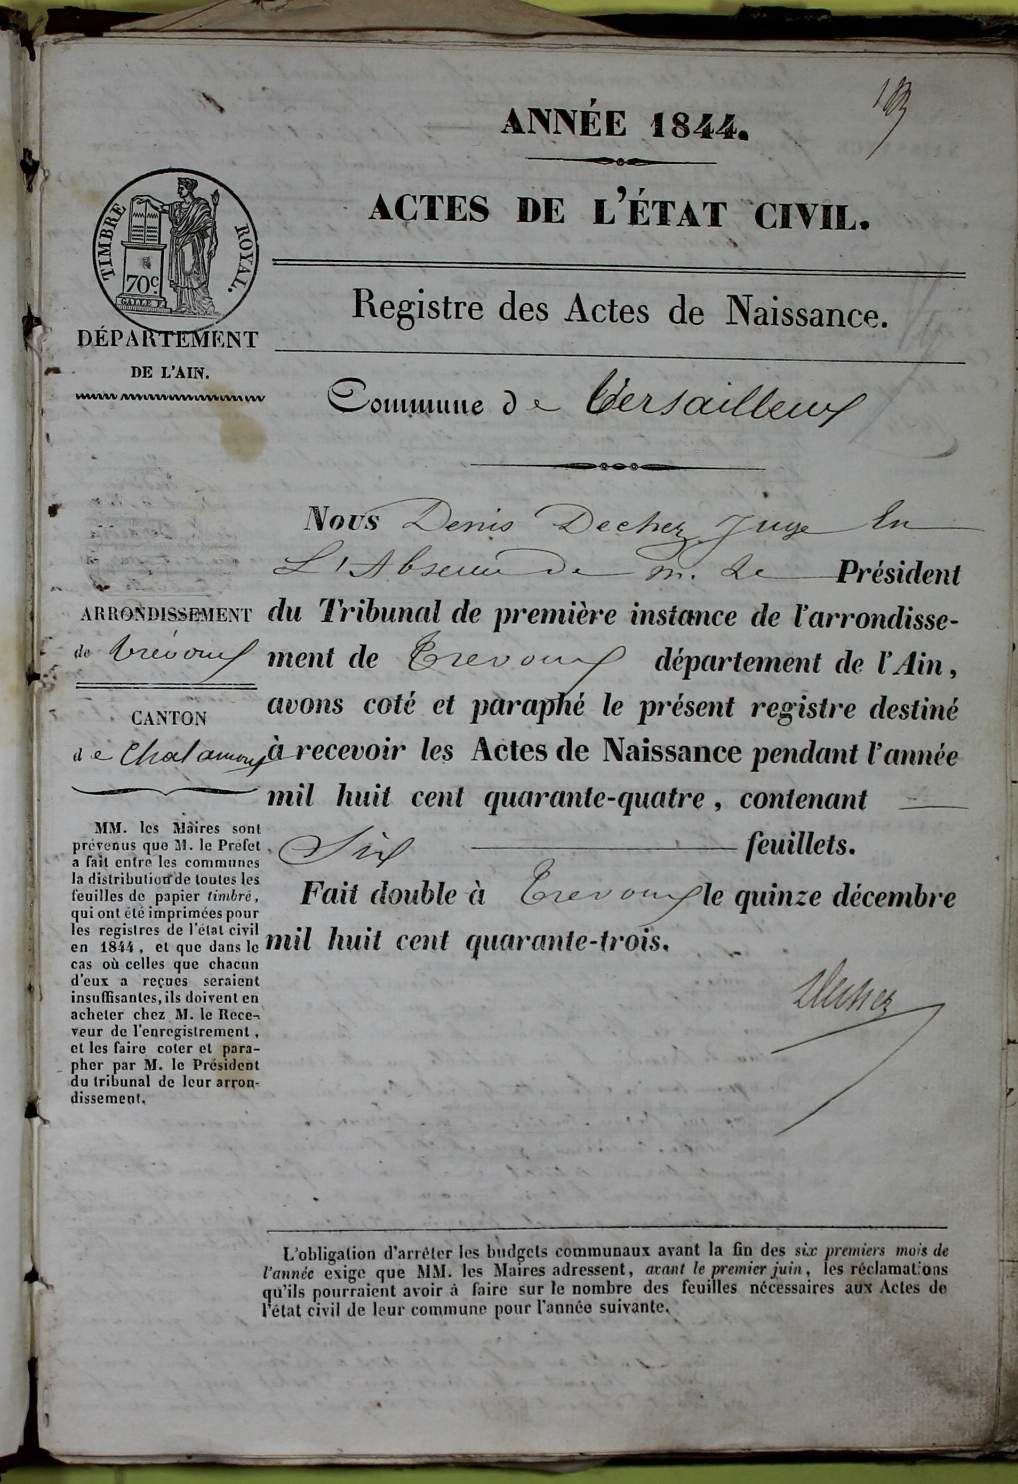 ANNÉE 1844.
ACTES DE L'ÉTAT CIVIL.
TIMBRE ROYAL.
70c.
Registre des Actes de Naissance.
DÉPARTEMENT
DE L'AIN.
Commune de Versailleux
Nous Denis Dechez Juge En
L'Absence de M. Le Président
du Tribunal de première instance de l'arrondisse-
ment de Trevoux département de l'Ain,
avons coté et paraphé le présent registre destiné
à recevoir les Actes de Naissance pendant l'année
mil huit cent quarante-quatre, contenant
Six feuillets.
Fait double à Trevoux le quinze décembre
mil huit cent quarante-trois.
Dechez
ARRONDISSEMENT
de Trévoux
CANTON
de Chalamont
MM. les Maires sont
prévenus que M. le Préfet
a fait entre les communes
la distribution de toutes les
feuilles de papier timbré,
qui ont été imprimées pour
les registres de l'état civil
en 1844, et que dans le
cas où celles que chacun
d'eux a reçues seraient
insuffisantes, ils doivent en
acheter chez M. le Rece-
veur de l'enregistrement,
et les faire coter et para-
pher par M. le Président
du tribunal de leur arron-
dissement.
L'obligation d'arrêter les budgets communaux avant la fin des six premiers mois de
l'année exige que MM. les Maires adressent, avant le premier juin, les réclamations
qu'ils pourraient avoir à faire sur le nombre des feuilles nécessaires aux Actes de
l'état civil de leur commune pour l'année suivante.